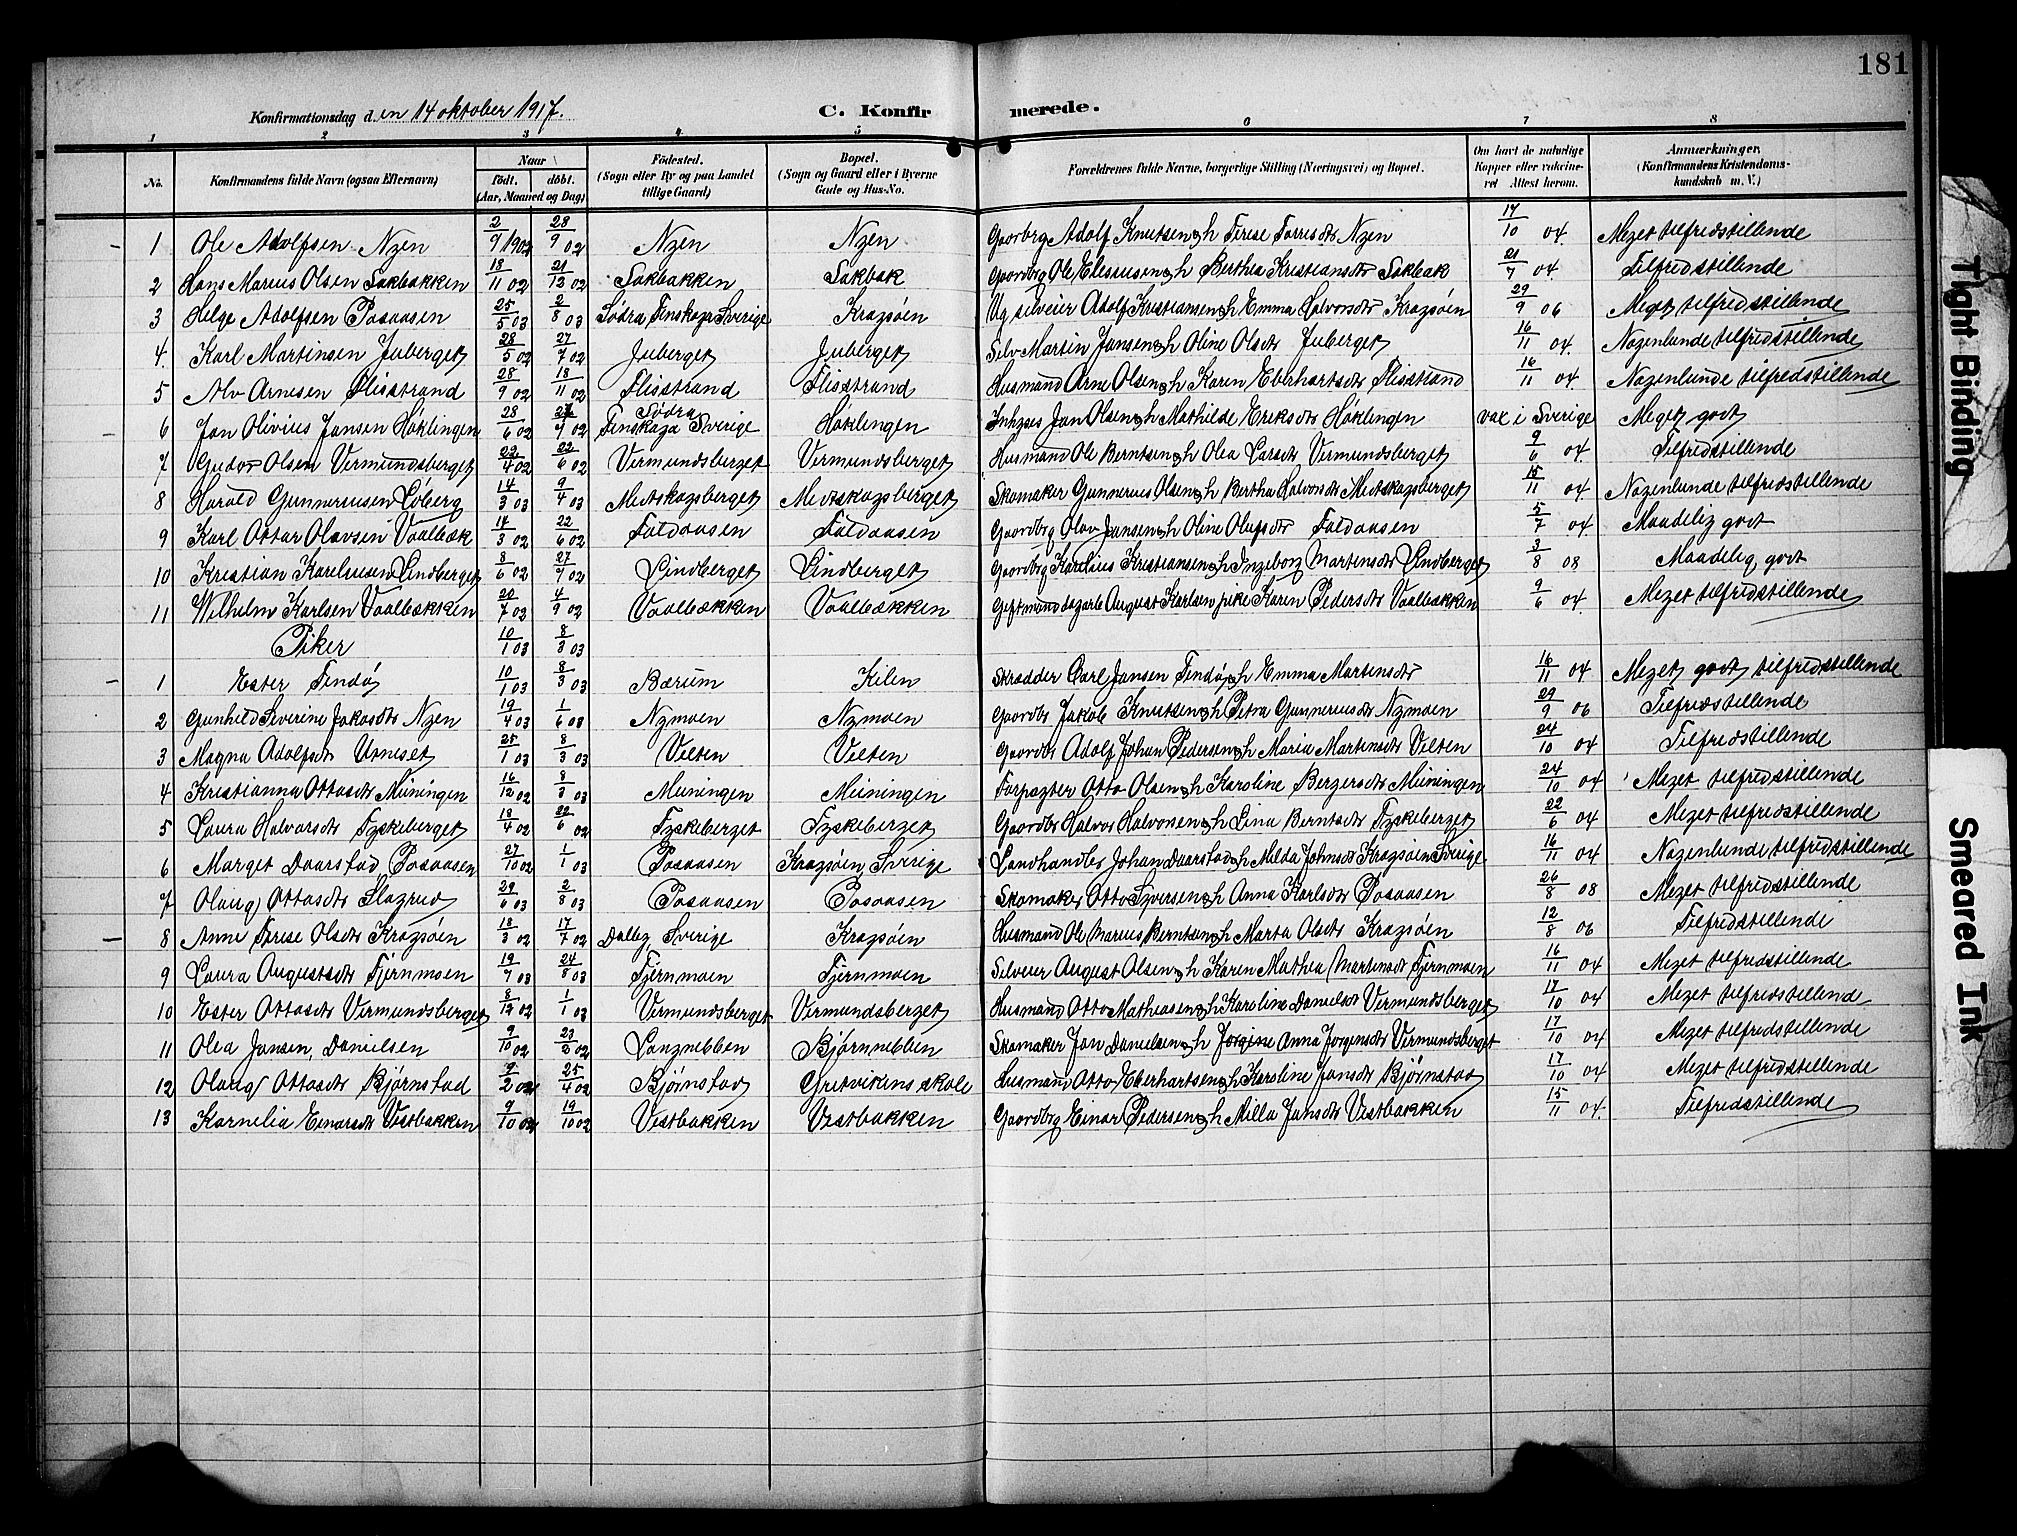 181
Konfirmationsdag den 14 oktober 1917. C. Konfirmerede.
1 2 3 4 5 6 7 8
No. Konfirmandens fulde Navn (ogsaa Efternavn) Naar født. døbt. (Aar, Maaned og Dag) Fødested. (Sogn eller By og paa Landet tillige Gaard) Bopæl. (Sogn og Gaard eller i Byerne Gade og Hus-No. Forældrenes fulde Navne, borgerlige Stilling (Næringsvei) og Bopæl. Om havt de naturlige Kopper eller vakcineret Attest herom. Anmærkninger. (Konfirmandens Kristendomskundskab m. V.)
1 Ole Adolfsen Nyen 2/9 1902 28/9 02 Nyen Nyen Gaardbrg Adolf Knutsen og h Terese Torresdtr Nyen 17/10 04. Meget tilfredstillende
2 Hans Marius Olsen Sakbakken 18/11 02 21/12 02 Sakbakken Sakbak Gaardbrg Ole Eliesusen og h Berthea Kristiansdtr Sakbak 21/7 04. Tilfredstillende
3 Helge Adolfsen Posaasen 25/5 03 2/8 03 Södra Finskoga Sverige Kragsøen Ug selveier Adolf Kristiansen og h Emma Halvorsdtr Kragsøen 29/9 06 Meget tilfredstillende
4. Karl Martinsen Juberget 28/5 02 27/7 02 Juberget Juberget Selv Martin Jansen og h Oline Olsdtr Juberget 16/11 04. Nogenlunde tilfredstillende
5 Alv Arnesen Flisstrand 28/9 02 18/11 02 Flisstrand Flisstrand Husmand Arne Olsen og h Karen Eberhartsdtr Flisstrand 16/11 04 Nogenlunde tilfredstillende
6 Jan Olivius Jansen Høklingen 28/6 02 27/7 02 Södra Finskoga Sverige Høklingen Inhyses Jan Olsen og h Mathilde Eriksdtr Høklingen vax i Sverige Meget godt
7 Gudor Olsen Vermundsberget 22/4 02 22/6 02 Vermundsberget Vermundsberget Husmand Ole Berntsen og h Olea Larsdtr Vermundsberget 9/6 04. Tilfredstillende
8 Harald Gunnerusen Löberg 14/3 03 9/4 03 Medskogsberget Medskogsberget Skomaker Gunnerius Olsen og h Bertha Halvorsdtr Medskogsberget 15/11 04 Nogenlunde tilfredstillende
9 Karl Ottar Olavsen Vaalbæk 14/3 02 22/6 02 Faldaasen Faldaasen Gaardbrg Olav Jansen og h Oline Olufsdtr Faldaasen 5/7 04. Maadelig godt
10 Kristian Karelusen Lindberget 8/6 02 27/7 02 Lindberget Lindberget Gaardbrg Karelius Kristiansen og h Ingeborg Martinsdtr Lindberget 3/8 08 Maadelig godt
11 Wilhelm Karlsen Vaalbækken 20/7 02 4/9 02 Vaalbækken Vaalbækken Gift mand dagarb August Karlsen pike Karen Pedersdtr Vaalbækken 9/6 04. Meget tilfredstillende
Piker 10/1 03 8/3 03
1 Ester Tendø 10/1 03 8/3 03 Bærum Kilen Skrædder Carl Jansen Tendø og h Emma Martinsdtr 16/11 04 Meget godt tilfredstillende
2 Gunhild Severine Jakobsdtr Nyen 19/4 03 1/6 08 Nymoen Nymoen Gaardbr Jakob Knutsen og h Petra Gunneriusdtr Nymoen 29/9 06 Tilfredstillende
3 Magna Adolfsdtr Urneset 25/1 03 8/3 03 Velten Velten Gaardbr Adolf Johan Pedersen og h Maria Martinsdtr Velten 24/10 04 Tilfredstillende
4 Kristianna Ottosdtr Meiningen 16/12 02 8/3 03 Meiningen Meiningen Forpagter Otto Olsen og h Karoline Bergersdtr Meiningen 24/10 04 Meget tilfredstillende
5 Laura Halvorsdtr Fyskeberget 18/4 02 22/6 02 Fyskeberget Fyskeberget Gaardbr Halvor Halvorsen og h Lina Berntsdtr Fyskeberget 22/6 04 Meget tilfredstillende
6 Marget Daarstad, Posaasen 27/10 02 1/1 03 Posaasen Kragsøen, Sverige Landhandler Johan Daarstad og h Milda Johnsdtr Kragsøen Sverige 16/11 04 Nogenlunde tilfredstillende
7 Olaug Ottosdtr Slagrud 29/6 03 2/8 03 Posaasen Posaasen Skomaker Otto Syversen og h Anna Karlsdtr Posaasen 26/8 08 Meget tilfredstillende
8 Anne Terese Olsdtr Kragsøen 18/3 02 17/7 02 Dalby, Sverige Kragsøen Husmand Ole Marius Berntsen og h Marta Olsdtr Kragsøen 12/8 06 Tilfredstillende
9 Laura Augustsdtr Tjernmoen 19/7 03 24/8 03 Tjernmoen Tjernmoen Selveier August Olsen og h Karen Mathea Martinsdt Tjernmoen 16/11 04 Meget tilfredstillende
10 Ester Ottosdtr Vermundsberget 8/12 02 1/1 03 Vermundsberget Vermundsberget Husmand Otto Mathiasen og h Karoline Danielsdt Vermundsberget 17/10 04 Meget tilfredstillende
11 Olea Jansen, Danielsen 9/10 02 23/2 02 Langnebben Bjørnnebben Skomaker Jan Danielsen og h Jørgine Anna Jørgensdtr Vermundsberget 17/10 04 Meget tilfredstillende
12 Olaug Ottosdtr Bjørnstad 9/2 02 25/4 02 Bjørnstad Gretvikens skole Husmand Otto Eberhartsen og h Karoline Jansdtr Bjørnstad 17/10 04. Meget tilfredstillende
13 Kornelia Einarsdtr Vestbakken 9/10 02 19/10 02 Vestbakken Vestbakken Gaardbrg Einar Pedersen og h Milla Jansdtr Vestbakken 15/11 04. Tilfredstillende
Tight Binding
Smeared Ink